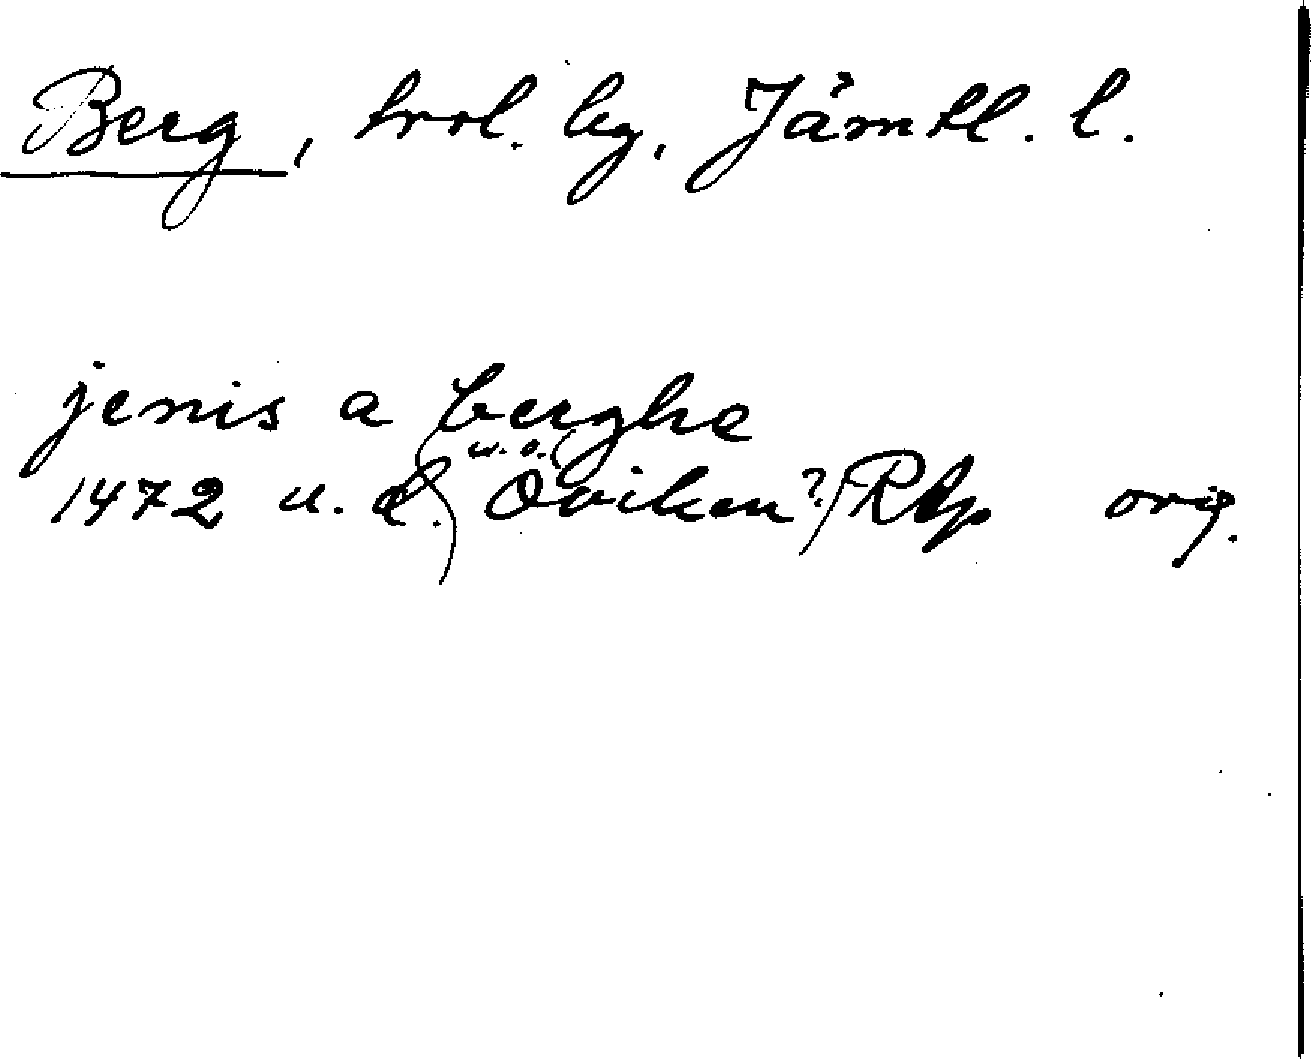 Berg, trol. by, Jämtl. l.
jenis a berghe
1472 u. d. (u. o. (Öviken?) RAp orig.